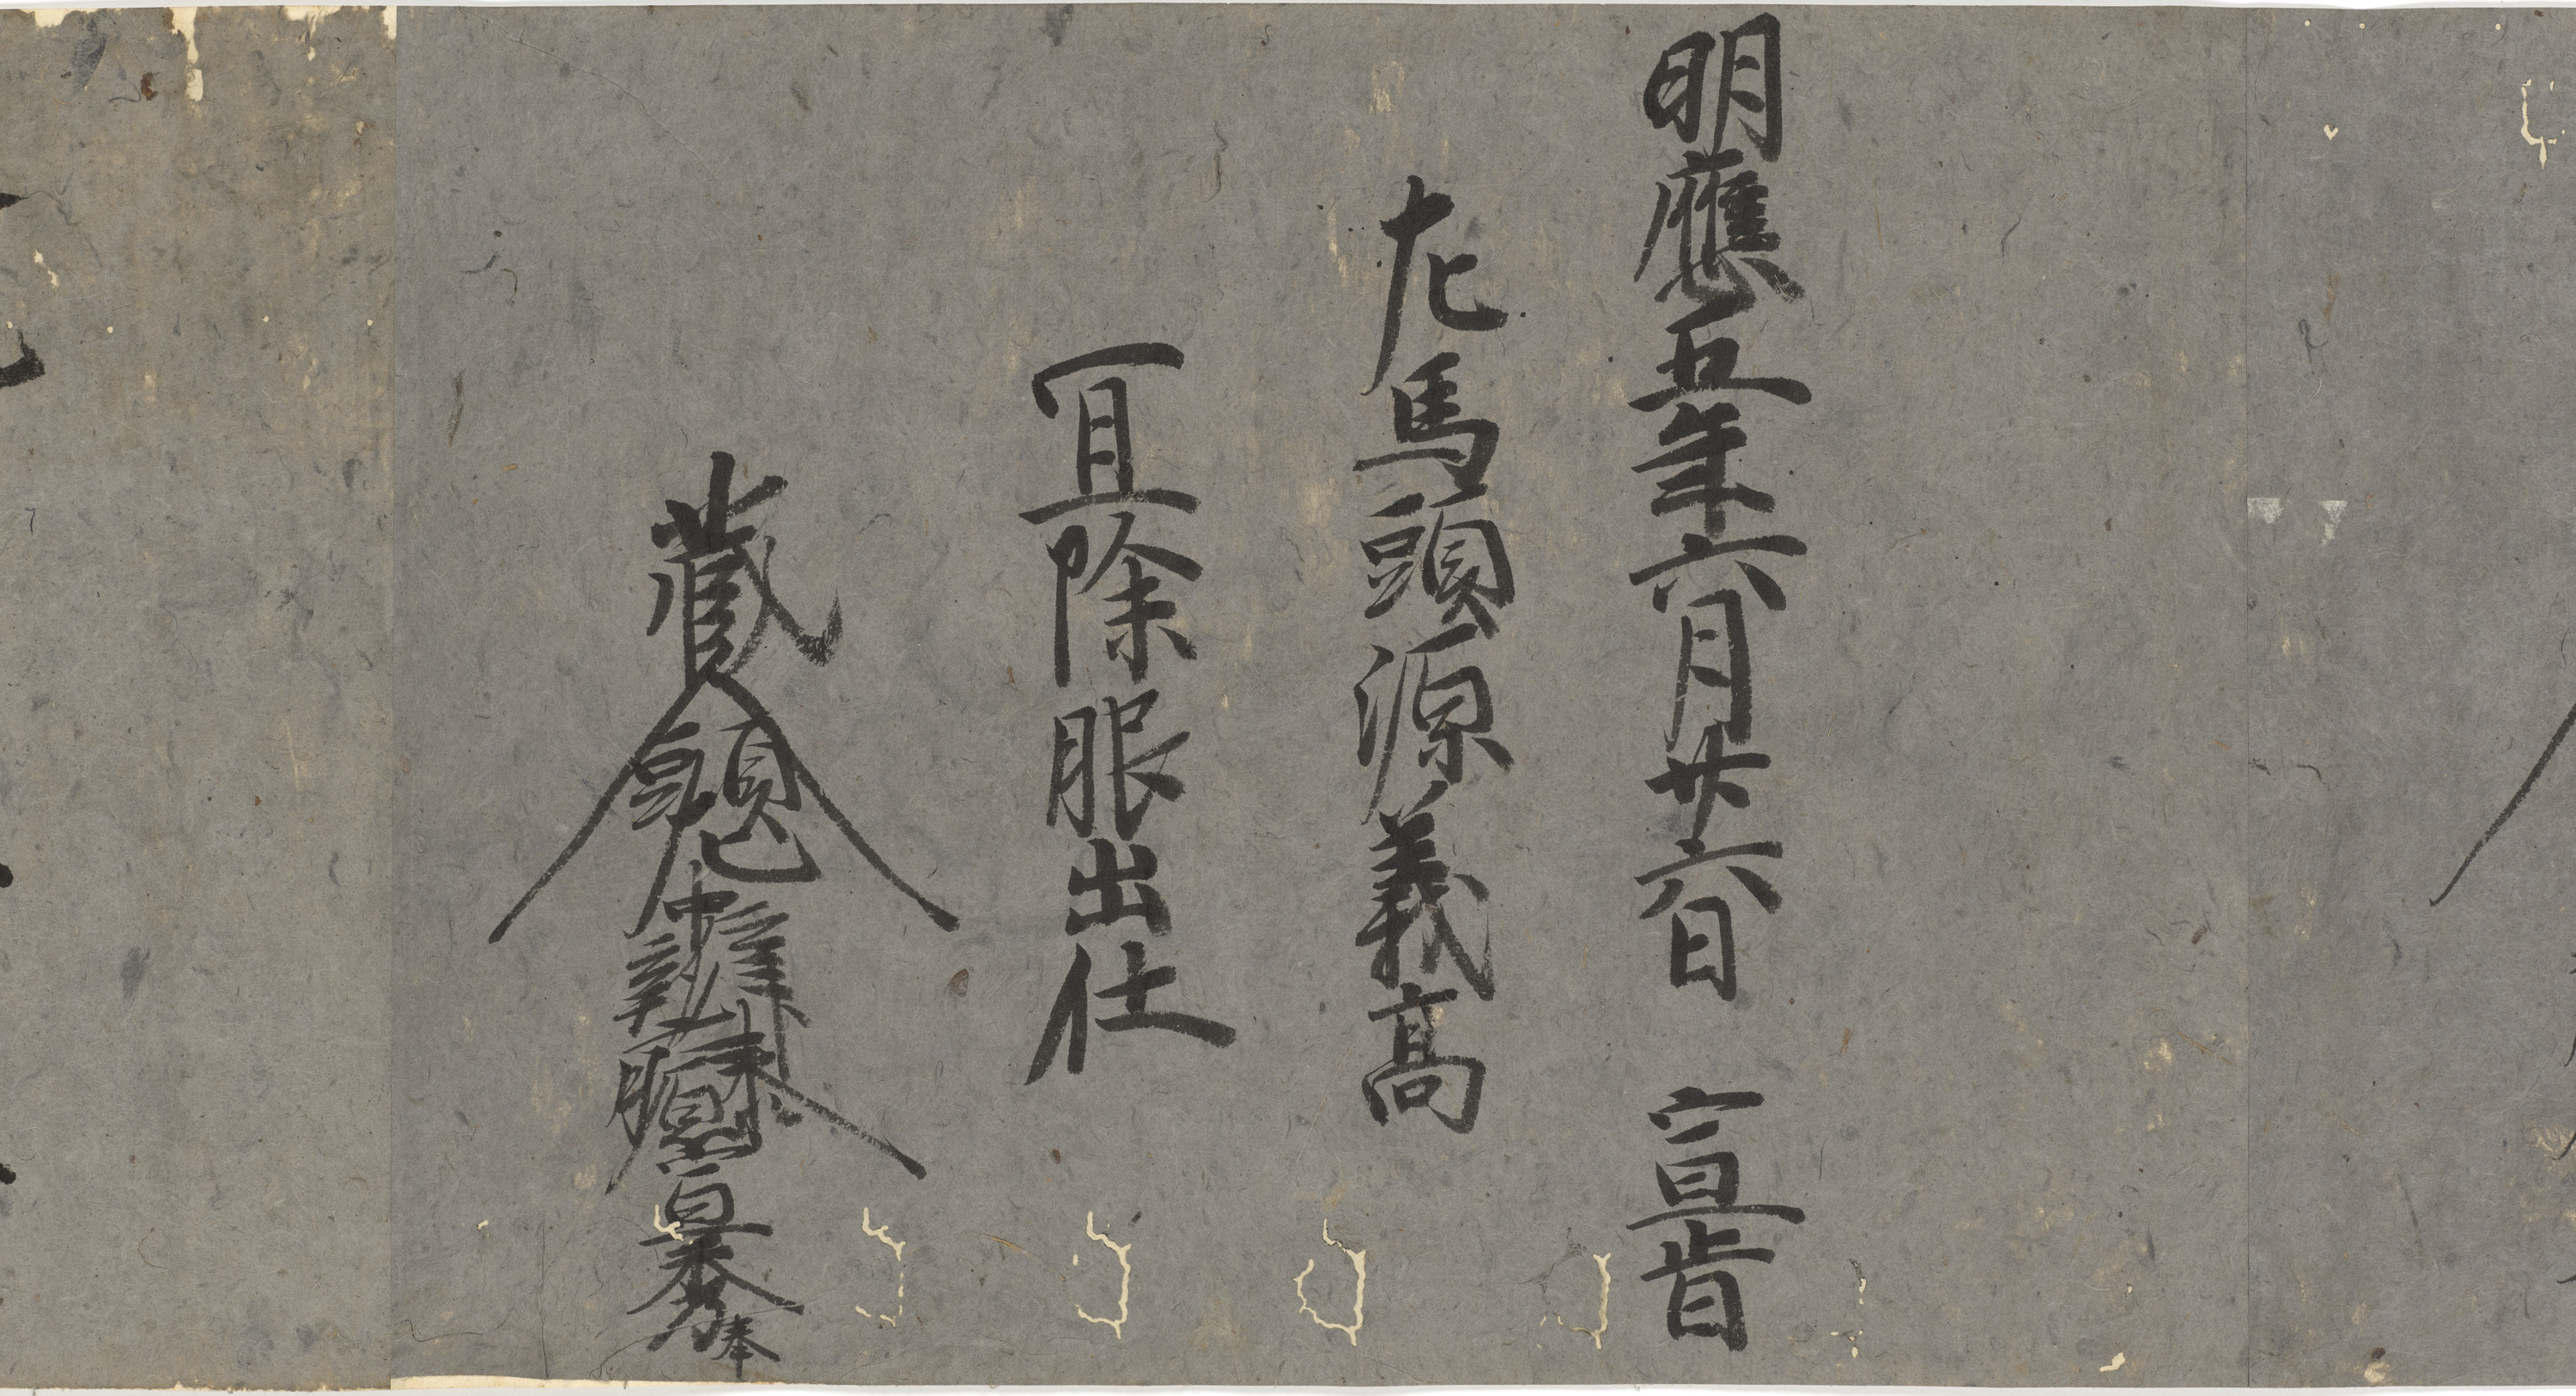 明應五年六月廿六日　宣旨
左馬頭源義高
宜除服出仕
藏人頭左中辨藤原朝臣宣秀奉